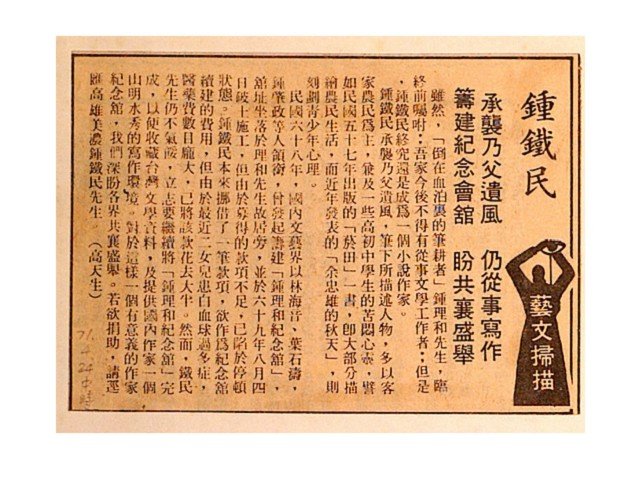 藝文掃描
鍾鐵民
承襲乃父遺風　仍從事寫作
籌建紀念會舘　盼共襄盛舉
雖然，「倒在血泊裏的筆耕者」鍾理和先生，臨
終前囑咐，吾家今後不得有從事文學工作者；但是
，鍾鐵民終究還是成爲一個小說作家。
鍾鐵民承襲乃父遺風，筆下所描述人物，多以客
家農民爲主，兼及一些高初中學生的苦悶心靈，譬
如民國五十七年出版的「菸田」一書，卽大部分描
繪農民生活，而近年發表的「余忠雄的秋天」，則
刻劃青少年心理。
民國六十八年，國內文藝界以林海音，葉石濤，
鍾肇政等人領銜，曾發起籌建「鍾理和紀念舘」，
舘址坐落於理和先生故居旁，並於六十九年八月四
日破土施工，但由於募得的款項不足，已陷於停頓
狀態。鍾鐵民本來挪借了一筆款項，欲作爲紀念舘
續建的費用，但由於最近二女兒患白血球過多症，
醫藥費數目龐大，已將該款花去大半。然而，鐵民
先生仍不氣餒，立志要繼續將「鍾理和紀念舘」完
成，以便收藏台灣文學資料，及提供國內作家一個
山明水秀的寫作環境。對於這樣一個有意義的作家
紀念舘，我們深盼各界共襄盛舉。若欲捐助，請逕
匯高雄美濃鍾鐵民先生。（高天生）
71.4.24中時